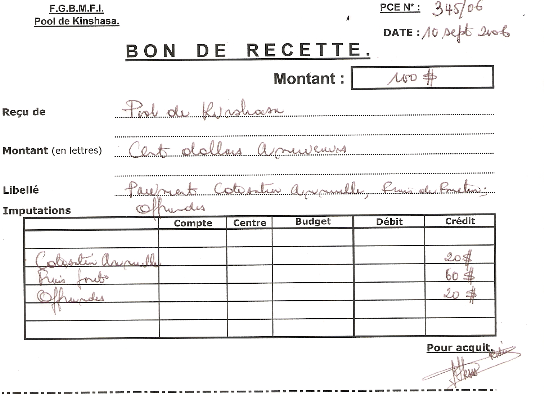 F.G.B.M.F.I.
Pool de Kinshasa.
PCE N° : 345/06
DATE : 10 sept 2006
BON DE RECETTE.
Montant : 100 $
Reçu de Pool de Kinshasa
Montant (en lettres) Cent dollars Americains
Libellé Paiement Cotisation Annuelle,
Offrandes
Imputations
Compte Centre Budget Débit Crédit
Cotisation Annuelle 20 $
Frais 60 $
Offrandes 20 $
Pour acquit